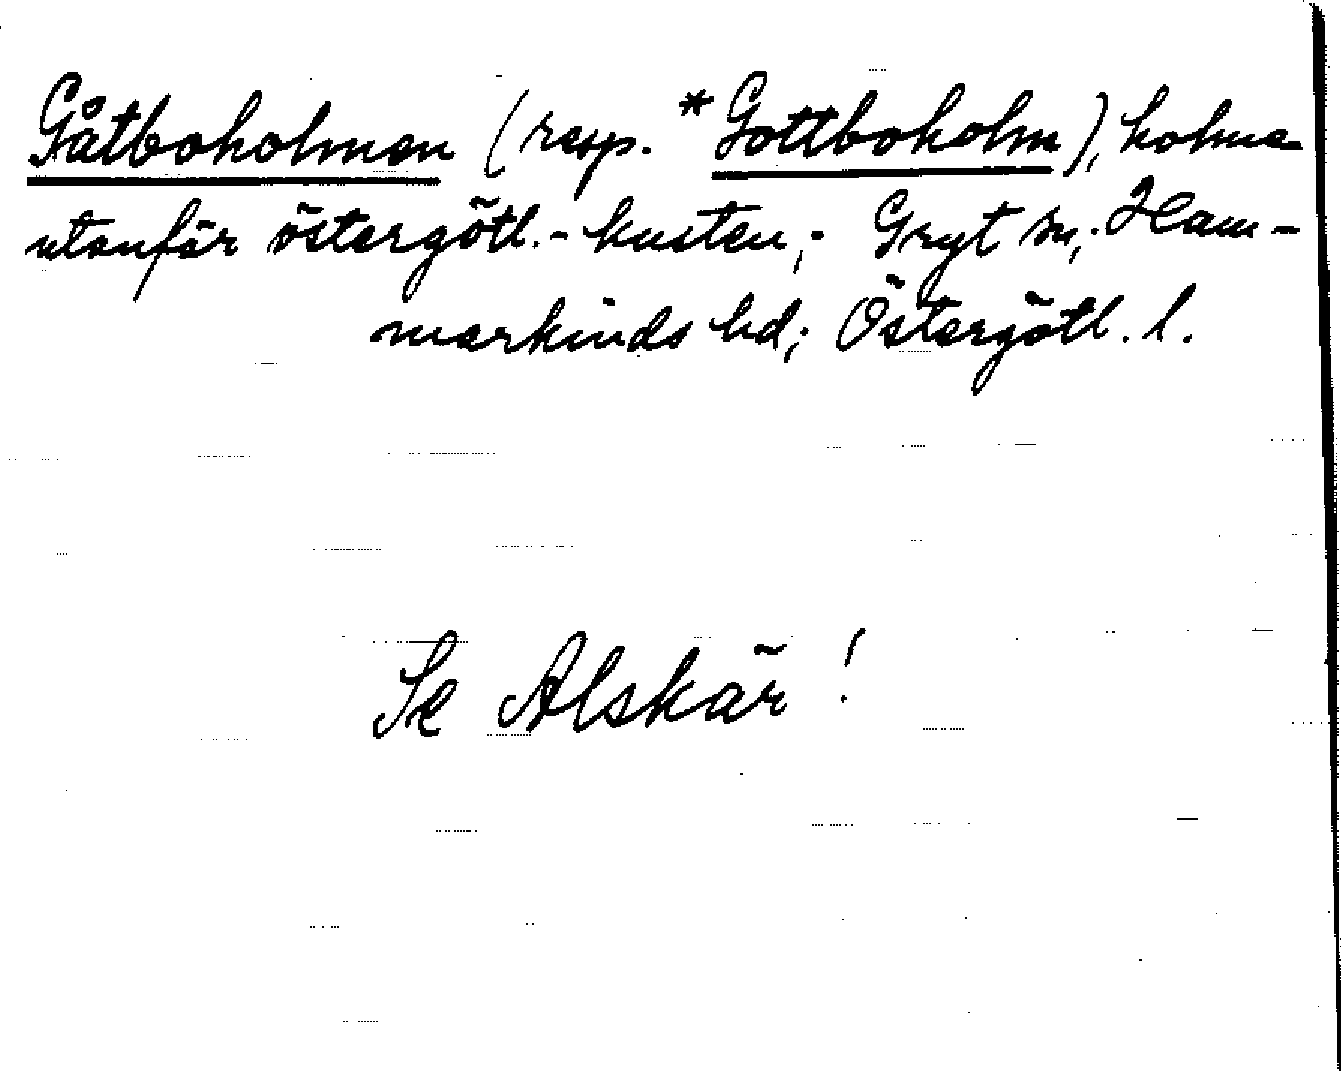 Gåtboholmen (resp. *Gottboholm), holme
utanför östergötl.-kusten; Gryt sn; Ham-
markinds hd; Östergötl. l.
Se Alskär!